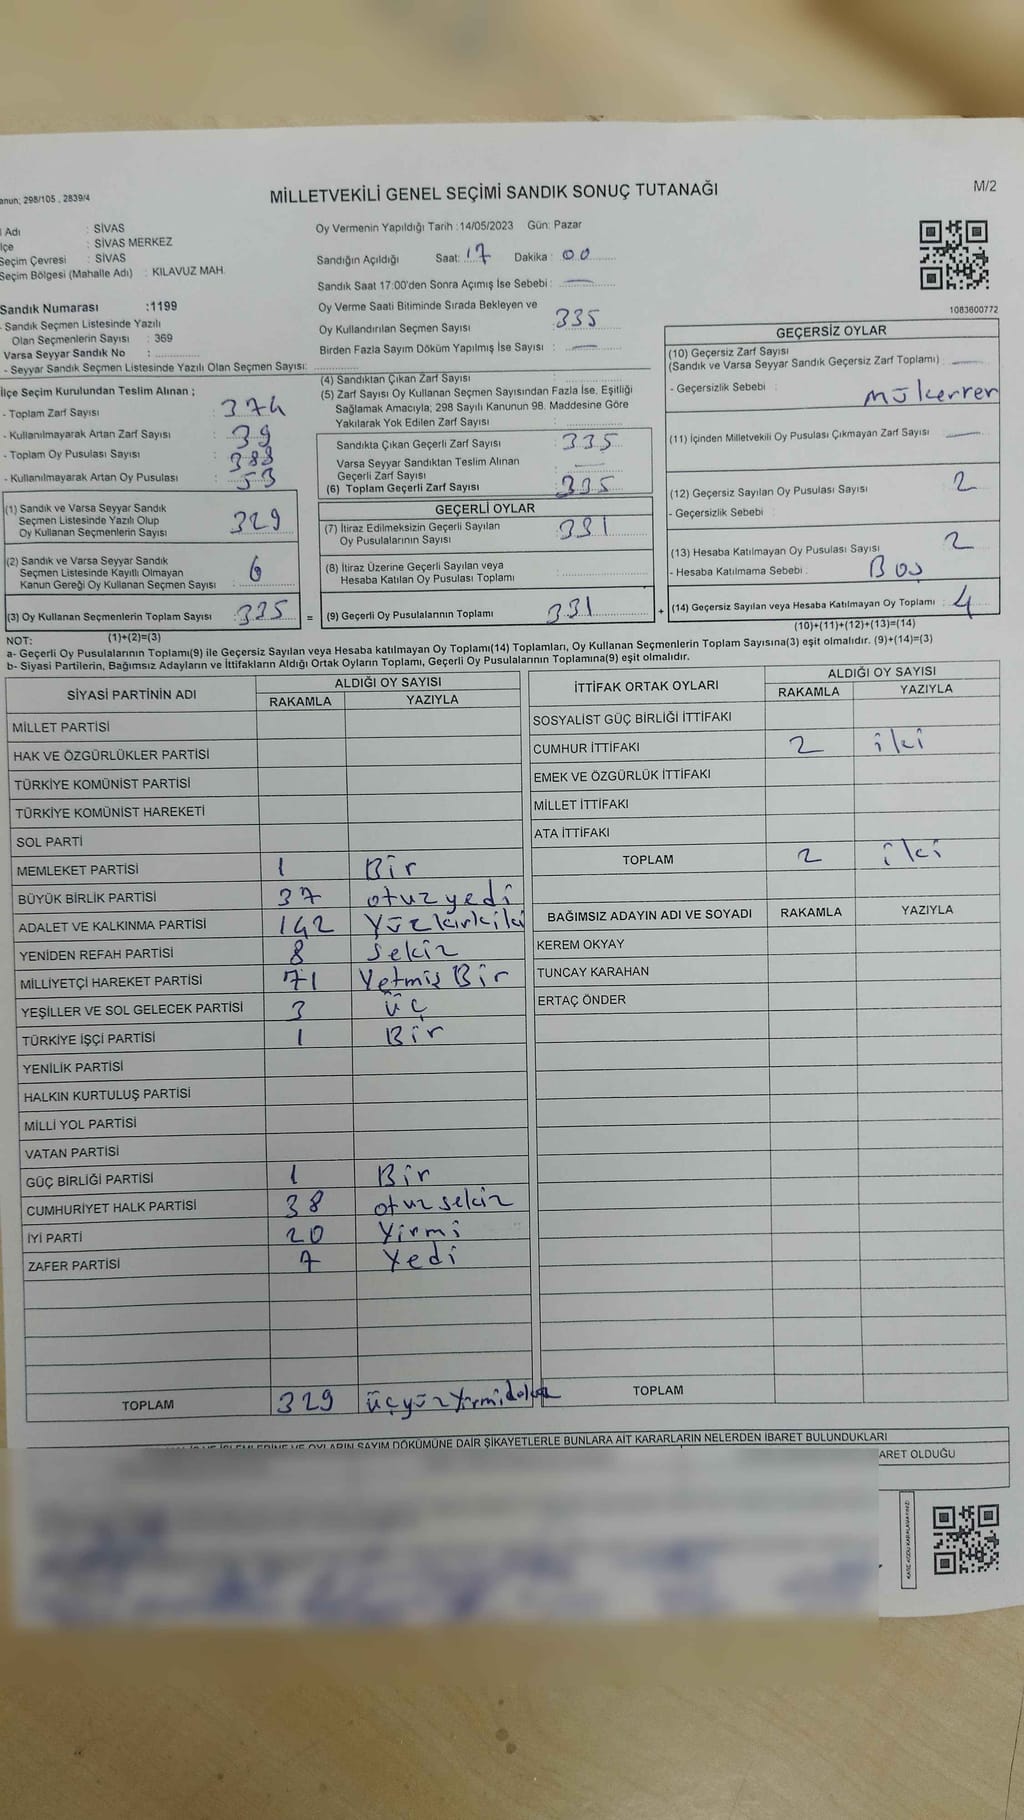 anun; 298/105 , 2839/4
MİLLETVEKİLİ GENEL SEÇİMİ SANDIK SONUÇ TUTANAĞI
M/2
Adı : SİVAS
lçe : SİVAS MERKEZ
Seçim Çevresi : SİVAS
Seçim Bölgesi (Mahalle Adı) : KILAVUZ MAH.
Sandık Numarası :1199
- Sandık Seçmen Listesinde Yazılı
Olan Seçmenlerin Sayısı : 369
Varsa Seyyar Sandık No :
- Seyyar Sandık Seçmen Listesinde Yazılı Olan Seçmen Sayısı:
Oy Vermenin Yapıldığı Tarih :14/05/2023 Gün: Pazar
Sandığın Açıldığı Saat: 17 Dakika : 00
Sandık Saat 17:00'den Sonra Açımış İse Sebebi : —
Oy Verme Saati Bitiminde Sırada Bekleyen ve
Oy Kullandırılan Seçmen Sayısı : 335
Birden Fazla Sayım Döküm Yapılmış İse Sayısı : —
1083600772
İlçe Seçim Kurulundan Teslim Alınan ;
- Toplam Zarf Sayısı : 374
- Kullanılmayarak Artan Zarf Sayısı : 39
- Toplam Oy Pusulası Sayısı : 388
- Kullanılmayarak Artan Oy Pusulası : 53
(1) Sandık ve Varsa Seyyar Sandık
Seçmen Listesinde Yazılı Olup
Oy Kullanan Seçmenlerin Sayısı : 329
(2) Sandık ve Varsa Seyyar Sandık
Seçmen Listesinde Kayıtlı Olmayan
Kanun Gereği Oy Kullanan Seçmen Sayısı : 6
(3) Oy Kullanan Seçmenlerin Toplam Sayısı : 335 =
(1)+(2)=(3)
(4) Sandıktan Çıkan Zarf Sayısı :
(5) Zarf Sayısı Oy Kullanan Seçmen Sayısından Fazla İse, Eşitliği
Sağlamak Amacıyla; 298 Sayılı Kanunun 98. Maddesine Göre
Yakılarak Yok Edilen Zarf Sayısı :
Sandıkta Çıkan Geçerli Zarf Sayısı : 335
Varsa Seyyar Sandıktan Teslim Alınan
Geçerli Zarf Sayısı : —
(6) Toplam Geçerli Zarf Sayısı : 335
GEÇERLİ OYLAR
(7) İtiraz Edilmeksizin Geçerli Sayılan
Oy Pusulalarının Sayısı : 331
(8) İtiraz Üzerine Geçerli Sayılan veya
Hesaba Katılan Oy Pusulası Toplamı :
(9) Geçerli Oy Pusulalarının Toplamı : 331 +
GEÇERSİZ OYLAR
(10) Geçersiz Zarf Sayısı
(Sandık ve Varsa Seyyar Sandık Geçersiz Zarf Toplamı) : —
- Geçersizlik Sebebi : Mükerrer
(11) İçinden Milletvekili Oy Pusulası Çıkmayan Zarf Sayısı : —
(12) Geçersiz Sayılan Oy Pusulası Sayısı : 2
- Geçersizlik Sebebi :
(13) Hesaba Katılmayan Oy Pusulası Sayısı : 2
- Hesaba Katılmama Sebebi : Boş
(14) Geçersiz Sayılan veya Hesaba Katılmayan Oy Toplamı : 4
(10)+(11)+(12)+(13)=(14)
NOT:
a- Geçerli Oy Pusulalarının Toplamı(9) ile Geçersiz Sayılan veya Hesaba katılmayan Oy Toplamı(14) Toplamları, Oy Kullanan Seçmenlerin Toplam Sayısına(3) eşit olmalıdır. (9)+(14)=(3)
b- Siyasi Partilerin, Bağımsız Adayların ve İttifakların Aldığı Ortak Oyların Toplamı, Geçerli Oy Pusulalarının Toplamına(9) eşit olmalıdır.
SİYASİ PARTİNİN ADI ALDIĞI OY SAYISI
RAKAMLA YAZIYLA
MİLLET PARTİSİ
HAK VE ÖZGÜRLÜKLER PARTİSİ
TÜRKİYE KOMÜNİST PARTİSİ
TÜRKİYE KOMÜNİST HAREKETİ
SOL PARTİ
MEMLEKET PARTİSİ 1 Bir
BÜYÜK BİRLİK PARTİSİ 37 otuz yedi
ADALET VE KALKINMA PARTİSİ 142 Yüzkırkiki
YENİDEN REFAH PARTİSİ 8 Sekiz
MİLLİYETÇİ HAREKET PARTİSİ 71 Yetmiş Bir
YEŞİLLER VE SOL GELECEK PARTİSİ 3 üç
TÜRKİYE İŞÇİ PARTİSİ 1 Bir
YENİLİK PARTİSİ
HALKIN KURTULUŞ PARTİSİ
MİLLİ YOL PARTİSİ
VATAN PARTİSİ
GÜÇ BİRLİĞİ PARTİSİ 1 Bir
CUMHURİYET HALK PARTİSİ 38 otuz sekiz
İYİ PARTİ 20 Yirmi
ZAFER PARTİSİ 7 Yedi
TOPLAM 329 üçyüzyirmidokuz
İTTİFAK ORTAK OYLARI ALDIĞI OY SAYISI
RAKAMLA YAZIYLA
SOSYALİST GÜÇ BİRLİĞİ İTTİFAKI
CUMHUR İTTİFAKI 2 iki
EMEK VE ÖZGÜRLÜK İTTİFAKI
MİLLET İTTİFAKI
ATA İTTİFAKI
TOPLAM 2 iki
BAĞIMSIZ ADAYIN ADI VE SOYADI RAKAMLA YAZIYLA
KEREM OKYAY
TUNCAY KARAHAN
ERTAÇ ÖNDER
TOPLAM
OYLARIN SAYIM DÖKÜMÜNE DAİR ŞİKAYETLERLE BUNLARA AİT KARARLARIN NELERDEN İBARET BULUNDUKLARI
ARET OLDUĞU